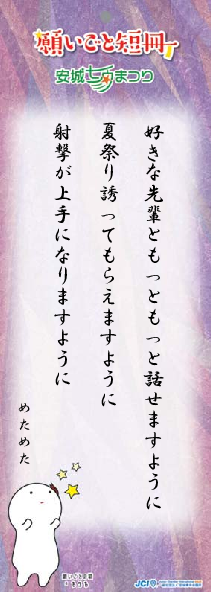 願いごと短冊
安城七夕まつり
好きな先輩ともっともっと話せますように
夏祭り誘ってもらえますように
射撃が上手になりますように
めためた
JCI